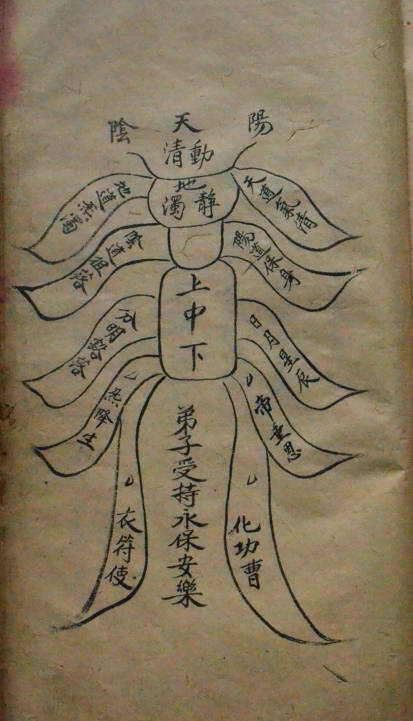 陽 天 陰
動清
地
靜濁
天道氣清
地道炁濁
陽道保身
陰道落
上中下
日月星辰
元明豁落
帝垂恩
炁降生
弟子受持永保安樂
化功曹
衣符使